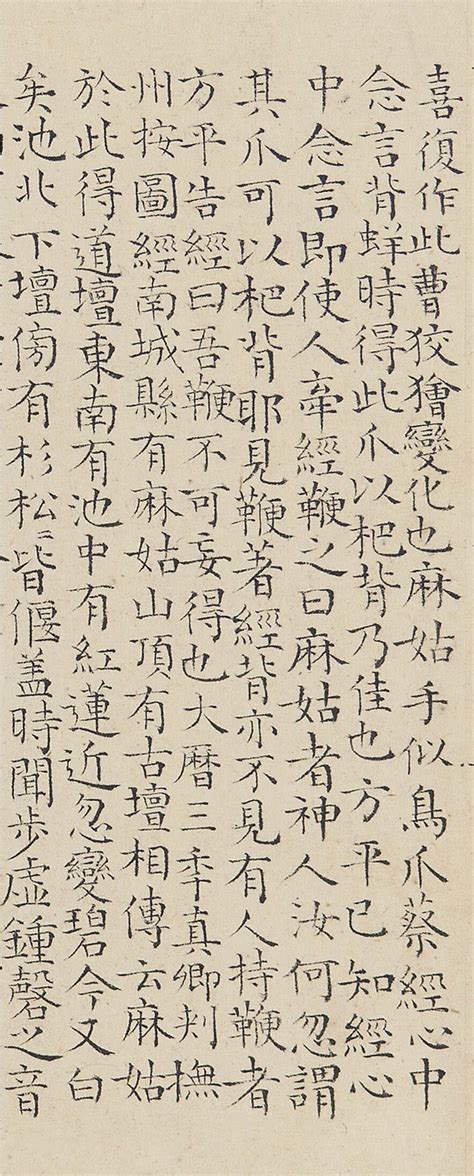 喜復作此曹狡獪變化也麻姑手似鳥爪蔡經心中
念言背蛘時得此爪以杷背乃佳也方平已知經心
中念言即使人牽經鞭之曰麻姑者神人汝何忽謂
其爪可以杷背耶見鞭著經背亦不見有人持鞭者
方平告經曰吾鞭不可妄得也大曆三季真卿刾撫
州按圖經南城縣有麻姑山頂有古壇相傳云麻姑
於此得道壇東南有池中有紅蓮近忽變碧今又白
矣池北下壇傍有杉松皆偃盖時聞步虛鍾磬之音